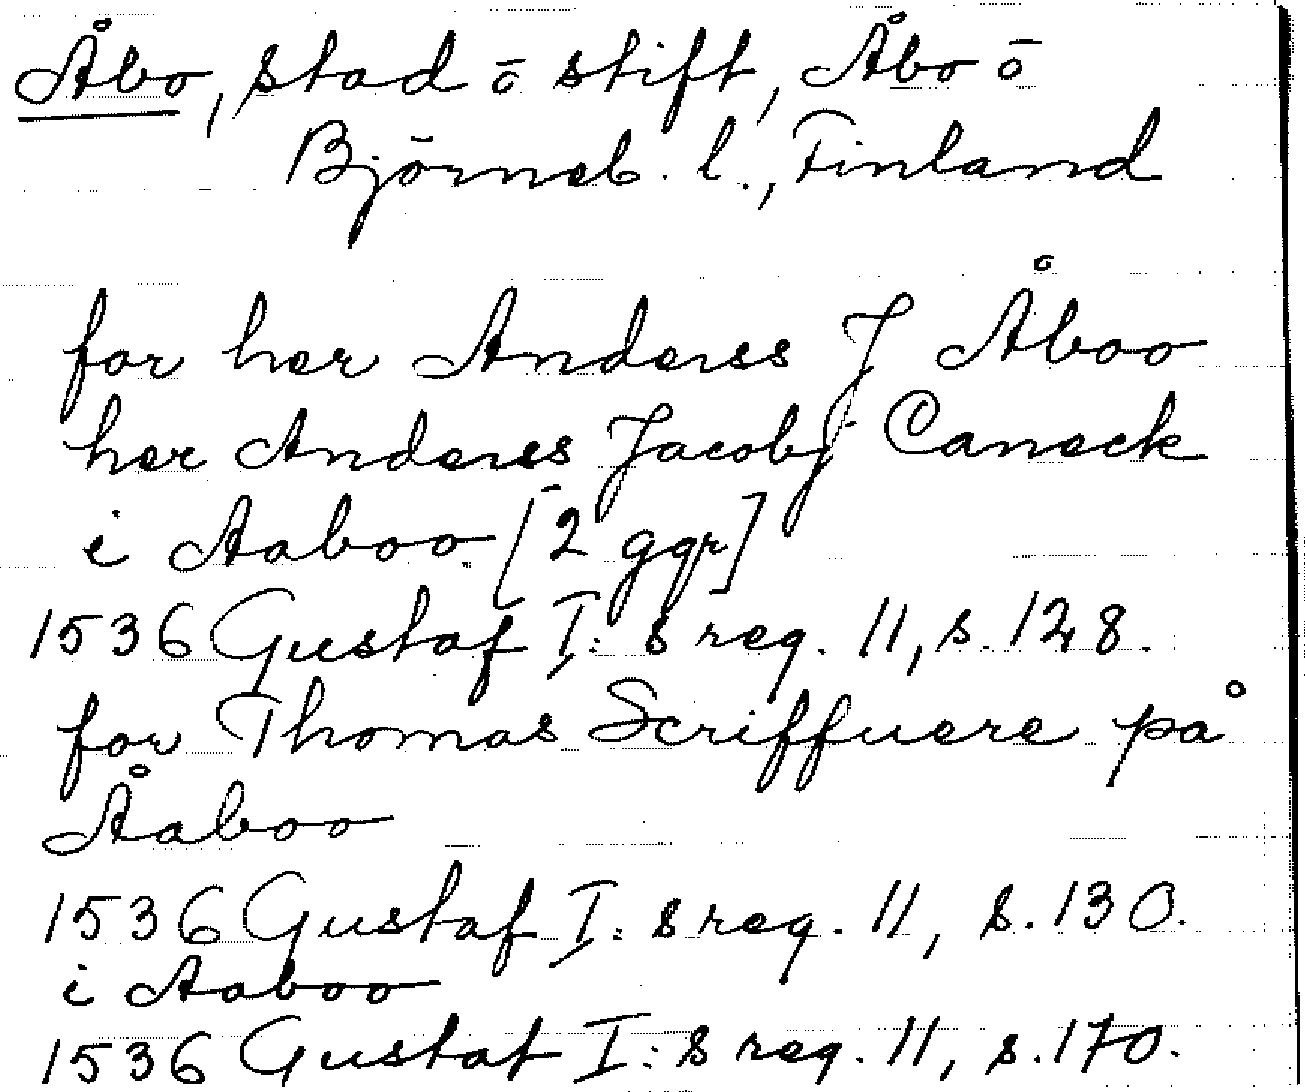 Åbo, stad o stift, Åbo o
Björneb. l., Finland
for her Anderss J Åboo
her Anderss Jacobj Caneck
i Aaboo [2 ggr]
1536 Gustaf I:s reg. 11, s. 128.
for Thomas Scriffuere på
Åaboo
1536 Gustaf I:s reg. 11, s. 130.
i Aaboo
1536 Gustaf I:s reg. 11, s. 170.